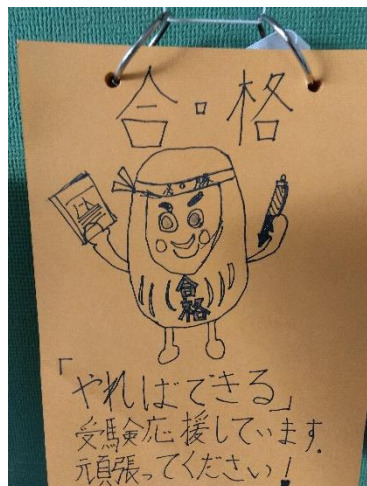 合・格
合格
「やればできる」
受験応援しています。
頑張ってください!